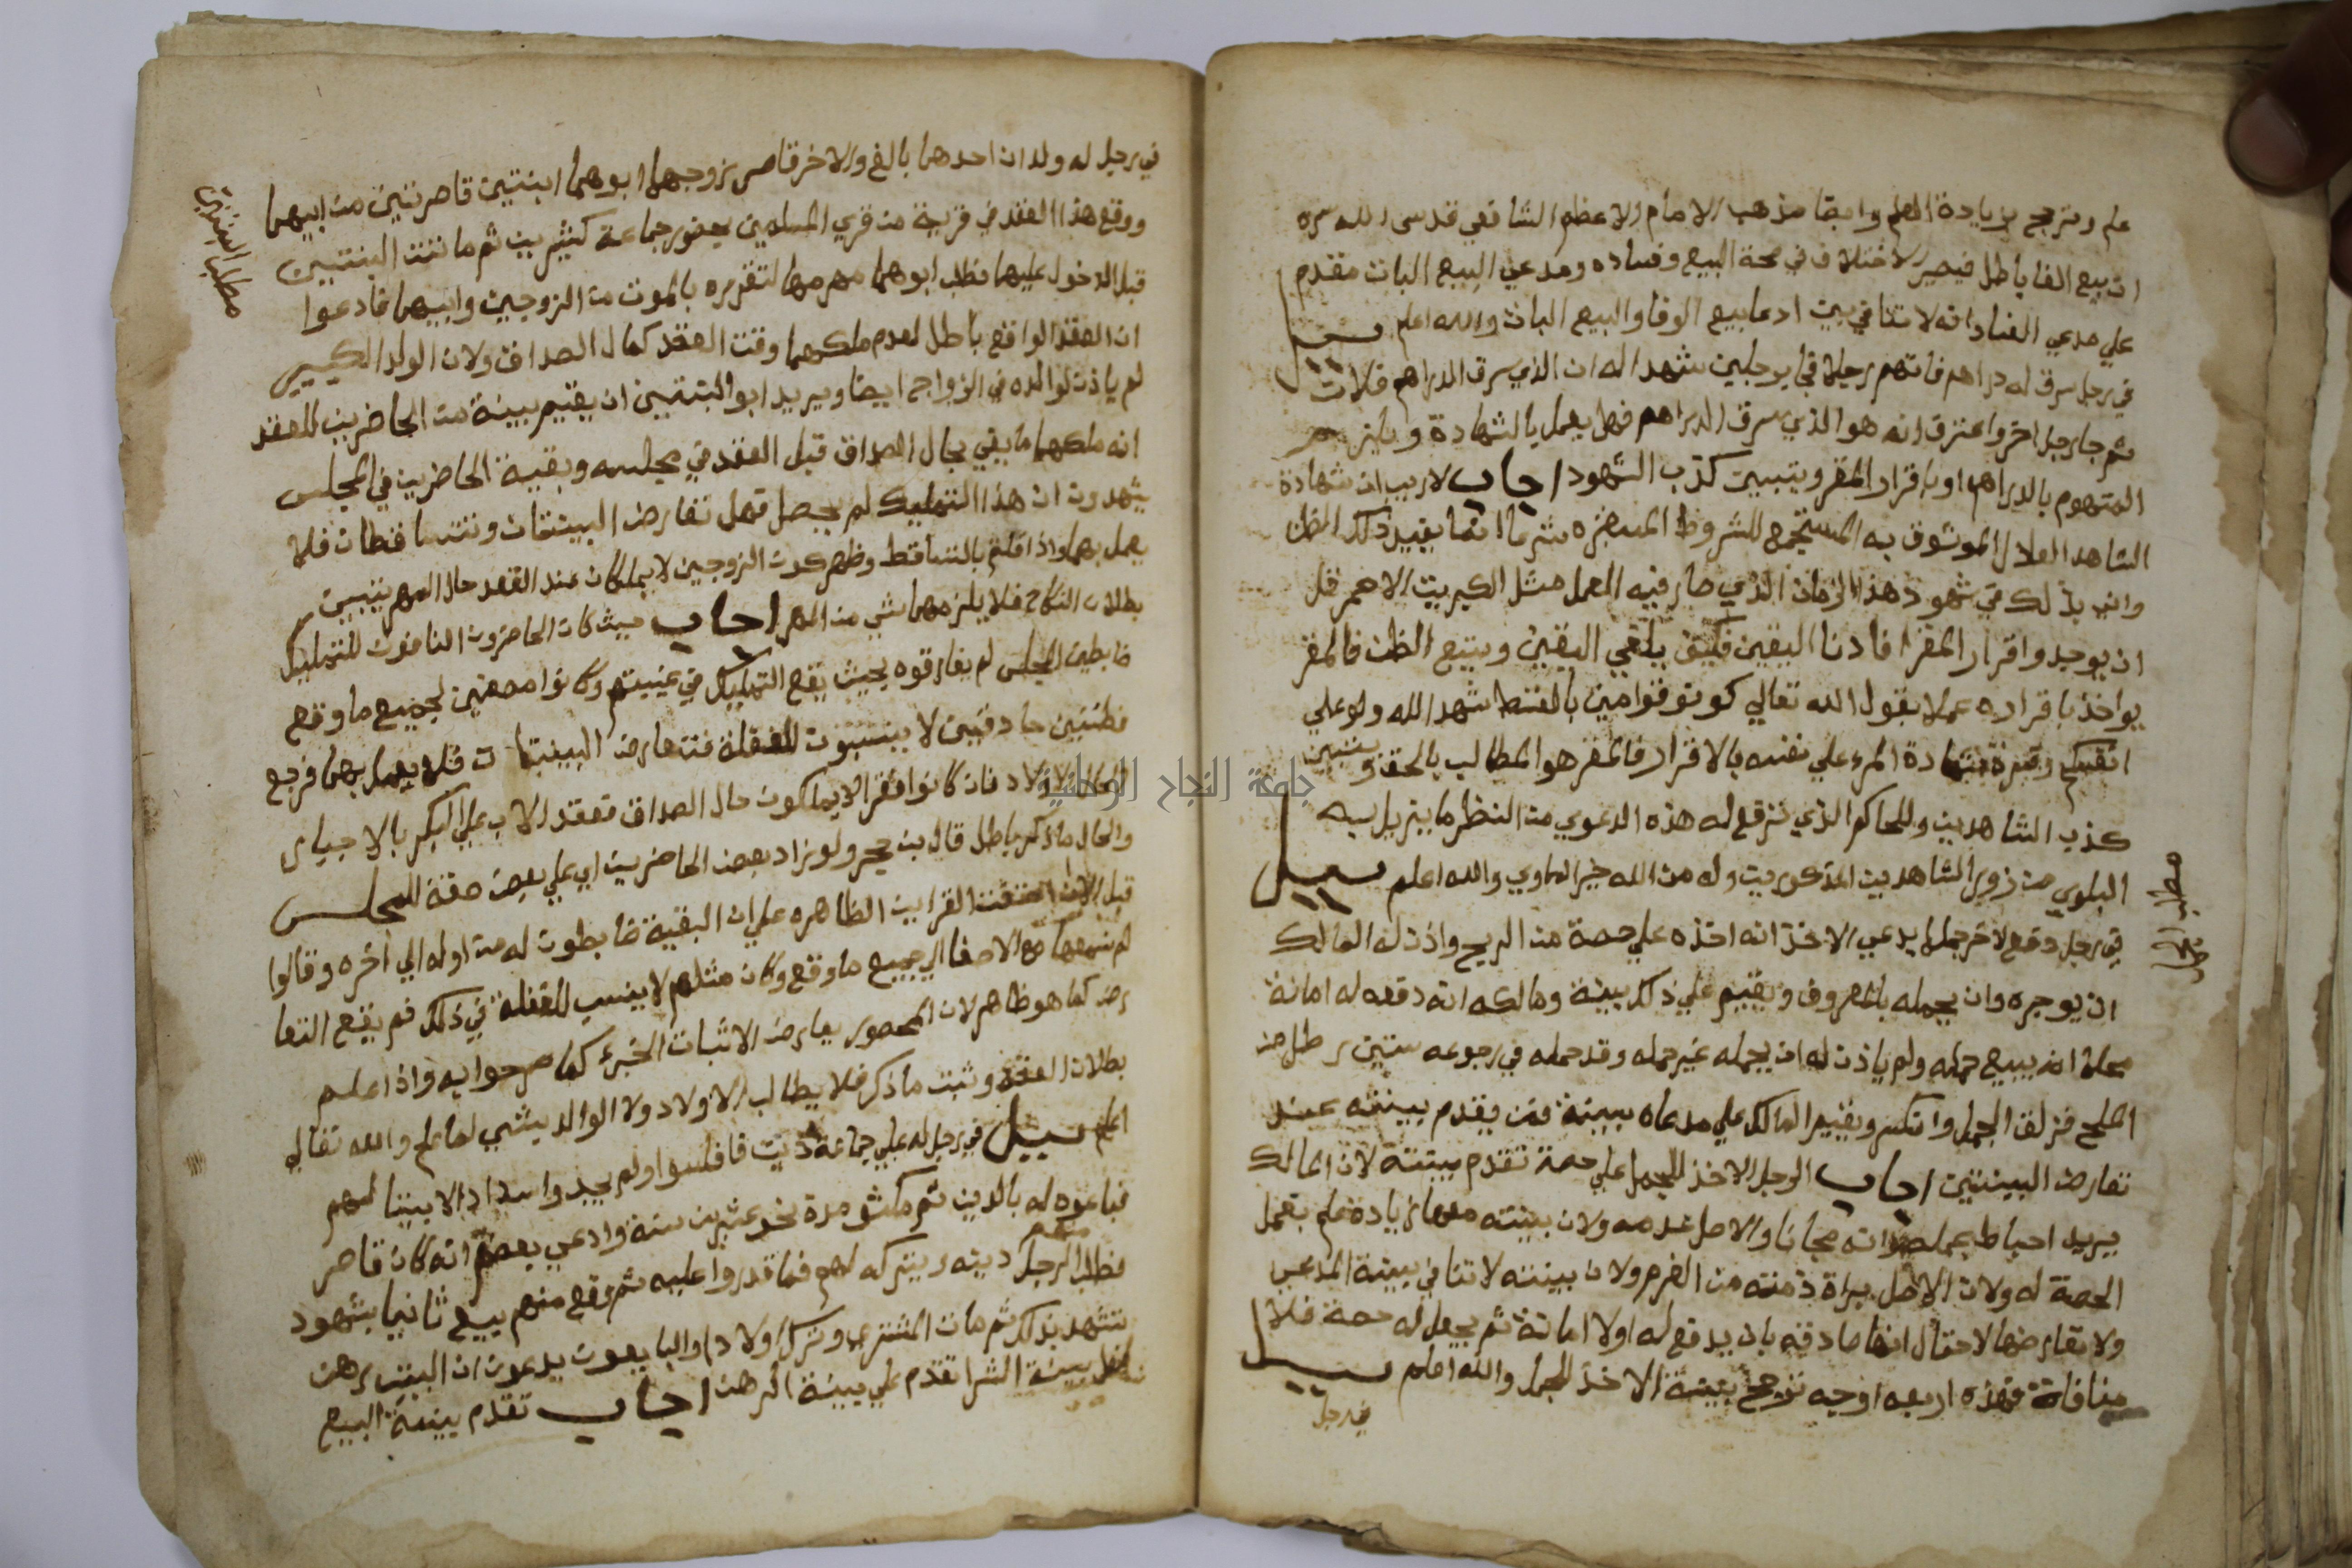 علم وترجح بزيادة العلم وايضا مذهب الامام الاعظم الشافعي قدس الله سره
ان بيع الفا باطل فيصير الاختلاف في صحة البيع وفساده ومدعي البيع البات مقدم
علي مدعي الفساد انه لا تنافي بين ادعا بيع الوفا والبيع البات والله اعلم سيل
في رجل سرق له دراهم فاتهم رجلا فجا برجلين شهدا له ان الذي سرق الدراهم فلان
ثم جا رجل اخر واعترف انه هو الذي سرق الدراهم فهل يعمل بالشهادة ويلزم
المتهوم بالدراهم او باقرار المقر ويتبين كذب الشهود اجاب لا ريب ان شهادة
الشاهد العدل الموثوق به المستجمع للشروط المعتبره شرعا انما يفيد ذلك الظن
واني بذلك في شهود هذا الزمان الذي صار فيه العمل مثل الكبريت الاحمر قل
ان يوجد واقرار المقر افادنا اليقين فكيف يلغي اليقين ويتبع الظن فالمقر
يواخذ باقراره عملا بقول الله تعالي كونو قوامين بالقسط شهدا لله ولو علي
انفسكم وشهادة المرء علي نفسه بالاقرار فالمقر هو المطالب بالحق ويتبين
كذب الشاهدين وللحاكم الذي ترفع له هذه الدعوي من النظر ما يزيل به
البلوي من زور الشاهدين المذكورين وله من الله خير الماوي والله اعلم سيل
في رجل دفع لاخر جملا يدعي الاخذ انه اخذه علي حصة من الربح واذن له المالك
ان يوجره وان يحمله بالمعروف ويقيم علي ذلك بينة ومالكه انه دفعه له امانة
علي ان يبيع حمله ولم ياذن له ان يحمله غير حمله وقد حمله في رجوعه ستين رطل من
الملح فزلق الجمل وانكسر ويقيم المالك علي مدعاه ببينة فمن يقدم ببينته عند
تعارض البينتين اجاب الرجل الاخذ للجمل علي حصة تقدم بينته لان المالك
يريد احباط عمله وانه مجانا والاصل عدمه ولان بينته معها زيادة علم بفعل
الحصة له ولان الاصل براة ذمته من الغرم ولان بينته لا تنافي بينة المدعي
ولا تعارضها لاحتمال انها صادقه بان يدفع له اولا امانة ثم يجعل له حصة فلا
منافاة فهذه اربعه اوجه ترجح بينة الاخذ للجمل والله اعلم سيل
في رجل
مطلب
في رجل له ولدان احدهما بالغ والاخر قاصر زوجهما ابوهما ابنتين قاصرتين من ابيهما
ووقع هذا العقد في قرية من قري المسلمين بحضور جماعة كثيرين ثم ماتت البنتين
قبل الدخول عليهما فطلب ابوهما مهرهما لتقرره بالموت من الزوجين وابيهما فادعوا
ان العقد الواقع باطل لعدم ملكهما وقت العقد كمال الصداق ولان الولد الكبير
لم ياذن لوالده في الزواج ايضا ويريد ابو البنتين ان يقيم بينة من الحاضرين للعقد
انه ملكهما ما يفي بحال الصداق قبل العقد في مجلسه وبقية الحاضرين في المجلس
يشهدون ان هذا التمليك لم يحصل فهل تعارض البينتان وتتساقطان فلا
يعمل بهما واذا قلتم بالتساقط وظهر كون الزوجين لا يملكان عند العقد حال المهر يتبين
بطلان النكاح فلا يلزمهما شي من المهر اجاب حيث كان الحاضرون النافون للتمليك
ضابطين المجلس لم يفارقوه بحيث يقع التمليك في غيبتهم وكانوا مصغين لجميع ما وقع
فطنين صادقين لا ينسبون للغفلة فتتعارض البينتان فلا يعمل بهما فرجع
الحال للاولاد فان كانوا فقرا لا يملكون حال الصداق فعقد الاب علي البكر بالاجبار
والحال ما ذكر باطل قال بن حجر ولو زاد بعض الحاضرين اي علي بعض صفة للمجلس
قبل الا ان اتفقت القراين الظاهره علي ان البقية ضابطون له من اوله الي اخره وقالوا
لم نسمعها مع الاصغا الي جميع ما وقع وكان مثلهم لا ينسب للغفلة في ذلك فم يقع التعا
رض كما هو ظاهر لان المحصور يعارض الاثبات الجزء كما صرحوا به واذا علم
بطلان العقد وثبت ما ذكر فلا يطالب الاولاد ولا الوالد بشي لما علم والله تعالي
اعلم سيل في رجل له علي جماعة دين فافلسوا ولم يجدوا سدادا الا بيتا لهم
فباعوه له بالدين ثم مكثو مدة نحو عشرين سنة وادعي بعضهم انه كان قاصر
فطلب الرجل منهم دينه ويتركه لهم فما قدروا عليه ثم وقع منهم بيع ثانيا بشهود
تشهد بذلك ثم مات المشتري وترك اولادا والبايعون يدعون ان البيت رهن
فهل بينة الشرا تقدم علي بينة الرهن اجاب تقدم بينة البيع
جامعة النجاح الوطنية